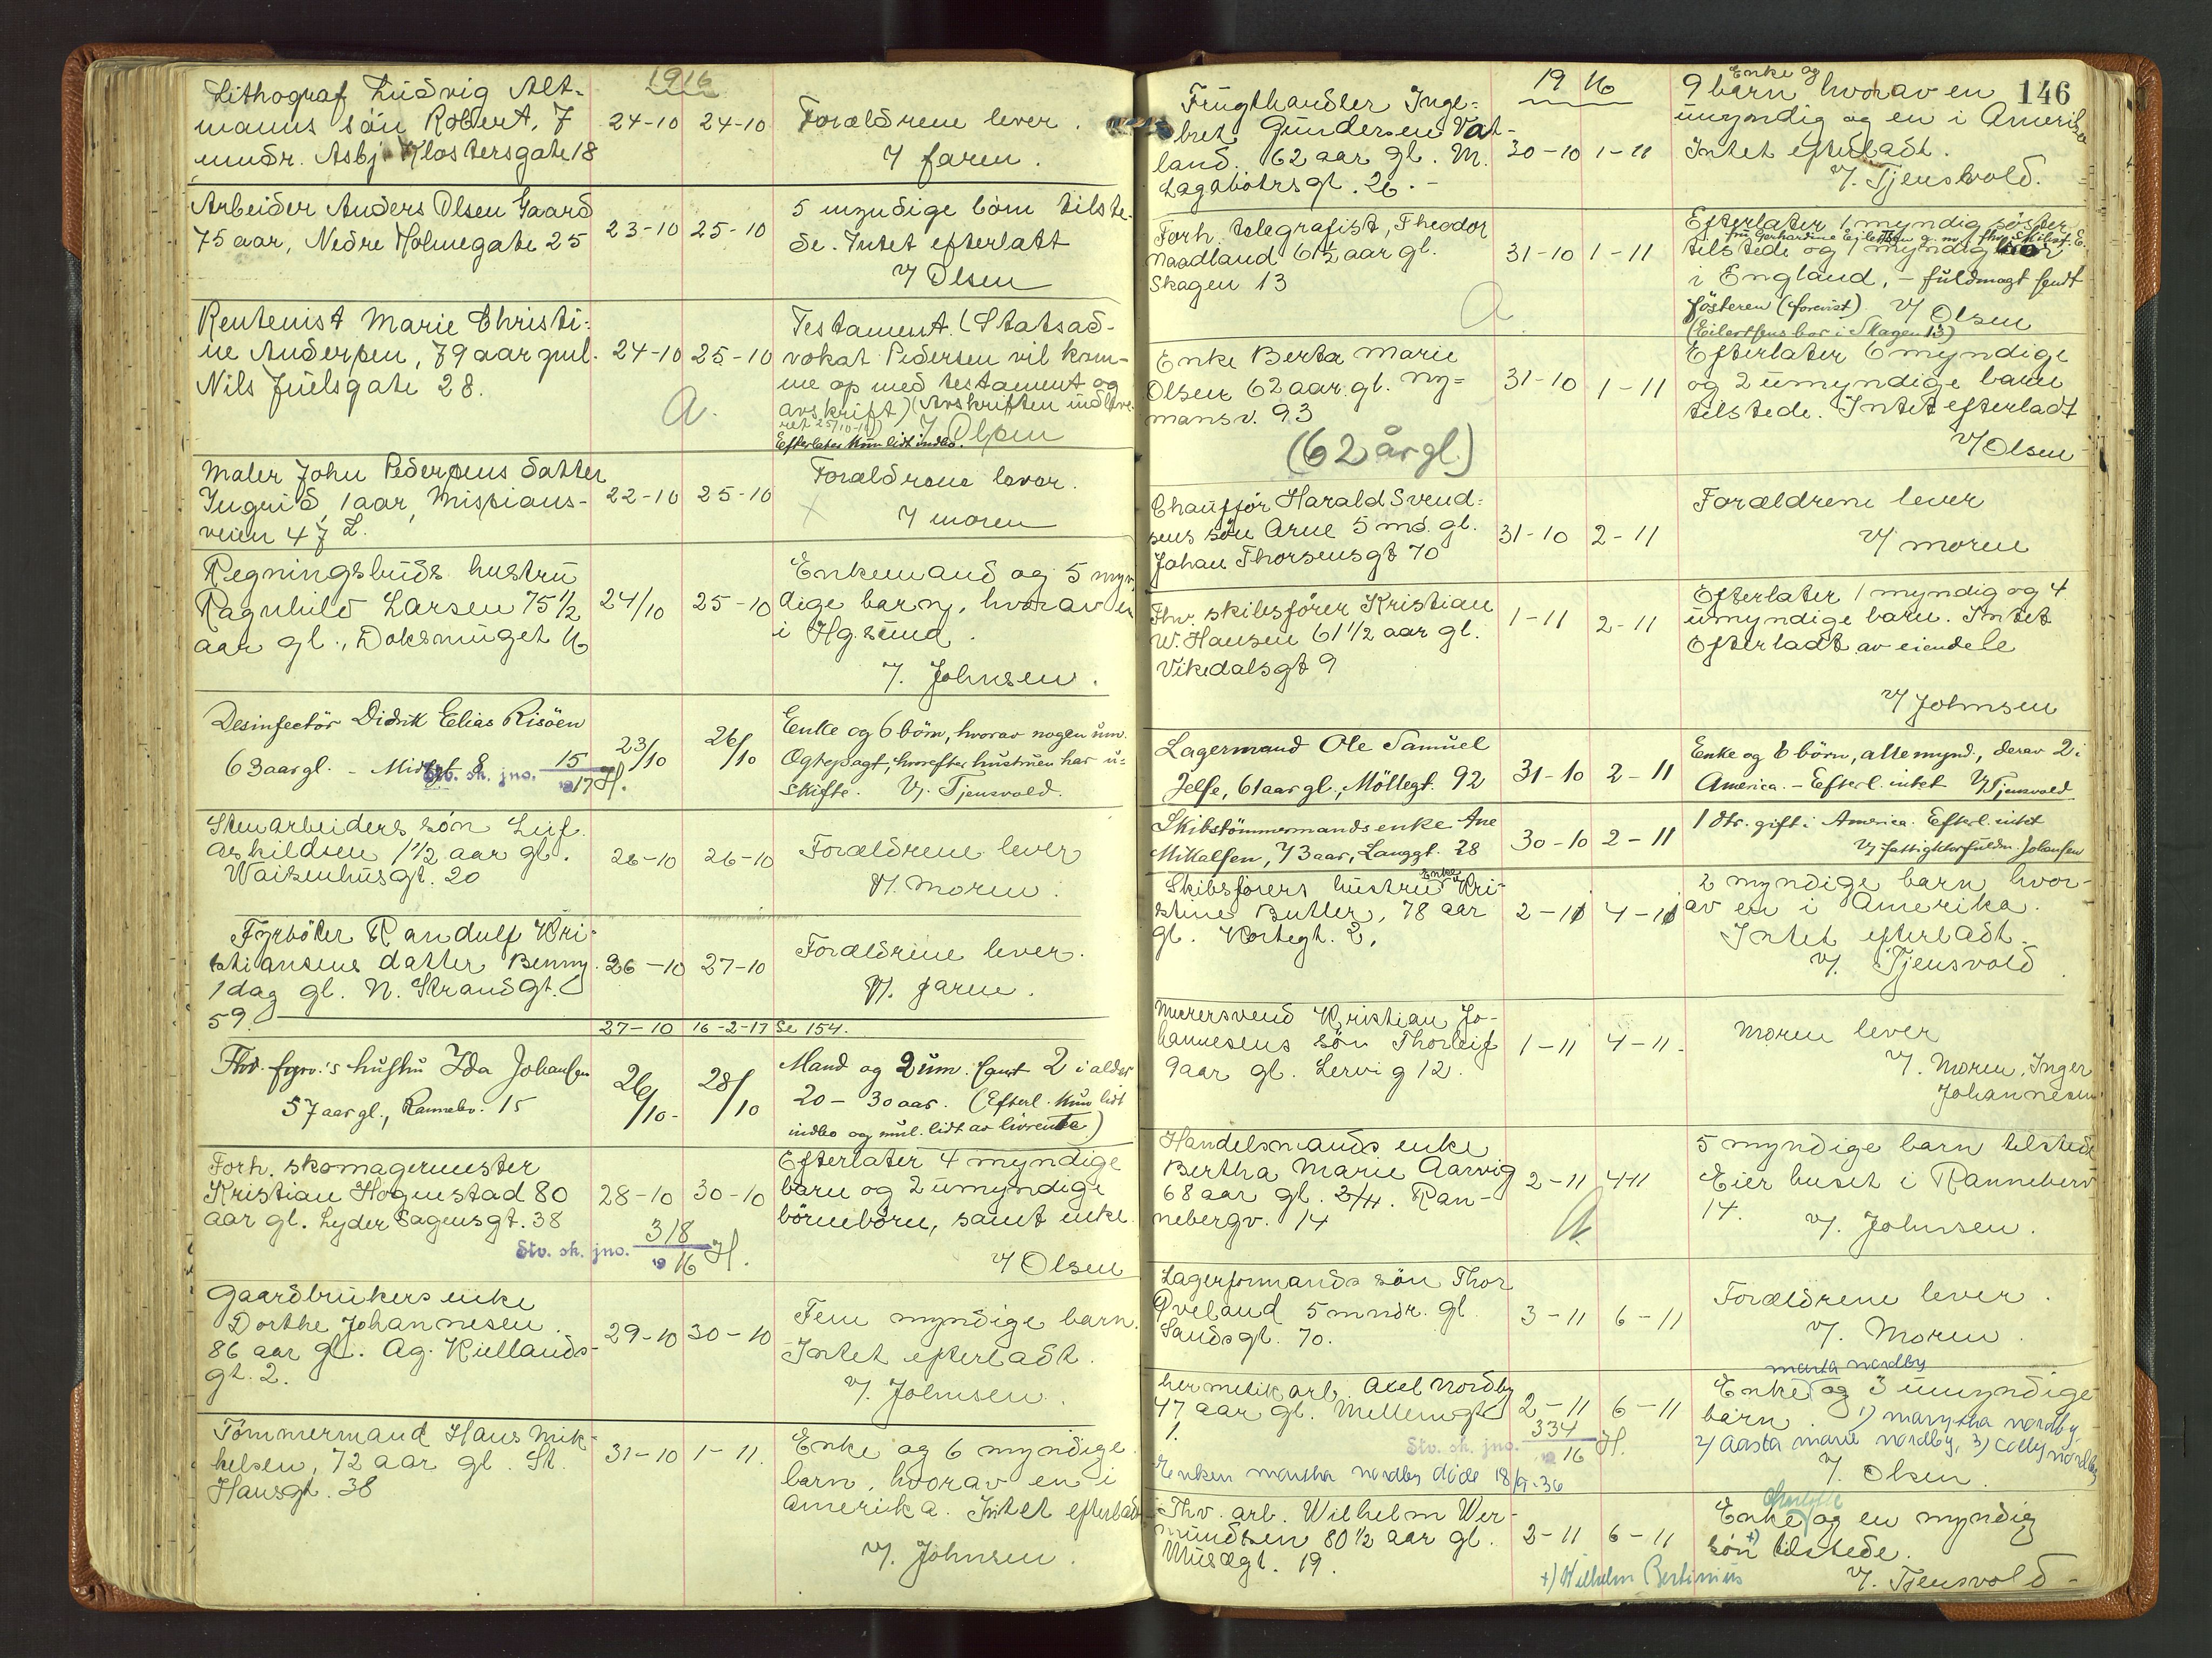 1916
Lithograf Ludvig Alt-
manns søn Robert, 7
mndr. Asbj. Klostersgate 18
24-10 24-10
Forældrene lever.
V/ faren.
Arbeider Anders Olsen Gaard
75 aar, Nedre Holmegate 25
23-10 25-10
5 myndige børn tilste-
de. Intet efterlatt
V/ Olsen
Rentenist Marie Christi-
ne Andersen, 79 aar gml.
Nils Juelsgate 28.
24-10 25-10
a.
Testament. (Statsad-
vokat Pedersen vil kom-
me op med testament og
avskrift) (Avskriften indleve-
ret 25/10-16) V/ Olsen
Efterlater kun lidt indbo.
Maler John Pedersens datter
Ingrid, 1 aar, Misjians-
veien 47 L.
22-10 25-10
Forældrene lever.
V/ moren
Regningsbuds hustru
Ragnhild Larsen 75 1/2
aar gl., Doksmuget 16
24/10 25-10
Enkemand og 5 myn-
dige barn, hvorav en
i Hg.sund.
V/. Johnsen.
Desinfectør Didrik Elias Risøen
63 aar gl. - Midtgt 8
Stv. sk. jno. 15
1917 H.
23/10 26/10
Enke og 6 børn, hvorav nogen um.
Ogtepagt, hvorefter hustruen har u-
skifte. V/. Tjensvold.
Stenarbeiders søn Leif
Askildsen 1 1/2 aar gl.
Waisenhusgt. 20
26-10 26-10
Forældrene lever
V/. moren.
Fyrbøter Randulf Kri-
stiansens datter Benny.
1 dag gl. N. Strandgt.
59.
26-10 27-10
Forældrene lever.
V/. faren.
27-10 16-2-17 Se 154.
Thv. fyrv.'s hustru Ida Johansen
57 aar gl., Rannebv. 15
26/10- 28/10
Mand og 2 um. samt 2 i alder
20-30 aar. (Efterl. kun lidt
indbo og mul. lidt av livrente)
Forh. skomagermester
Kristian Hognestad 80
aar gl. Lyder Sagensgt. 38
Stv. sk. jno. 318
1916 H.
28-10 30-10
Efterlater 4 myndige
barn og 2 umyndige
børnebørn, samt enke.
V/ Olsen
Gaardbrukers enke
Dorthe Johannesen.
86 aar gl. Ag. Kiellands-
gt. 2.
29-10 30-10
Fem myndige barn.
Intet efterladt.
V/. Johnsen.
Tømmermand Hans Mik-
kelsen, 72 aar gl. St.
Hansgt. 38
31-10 1-11.
Enke og 6 myndige
barn, hvorav en i
Amerika. Intet efterladt
V/. Johnsen.
146
1916
Frugthandler Inge-
bret Gundersen Vat-
land. 62 aar gl. M.
Lagabøtersgt. 26.-
30-10 1-11
Enke og
9 barn hvorav en
umyndig og en i Amerika
Intet efterladt.
V/. Tjensvold.
Forh. telegrafist, Theodor
Naadland 61 1/2 aar gl.
Skagen 13
31-10 1-11
a
Efterlater 1 myndig søster
fru Gerhardine Eilertsen g. m. fhv. Skibsf. E.
tilstede og 1 myndig bror
i England, - fuldmagt sendt
søsteren (forevist) V/ Olsen
(Eilertsens bor i Skagen 13)
Enke Berta Marie
Olsen 62 aar gl. Ny-
mansv. 93
(62 år gl.)
31-10 1-11
Efterlater 6 myndige
og 2 umyndige barn
tilstede. Intet efterladt
V/ Olsen
Chauffør Harald Svend-
sens søn Arne 5 md. gl.
Johan Thorsensgt 70
31-10 2-11
Forældrene lever
V/ moren
Fhv. skibsfører Kristian
W. Hansen 61 1/2 aar gl.
Vikedalsgt 9
1-11 2-11
Efterlater 1 myndig og 4
umyndige barn. Intet
Efterladt av eiendele
V/ Johnsen
Lagermand Ole Samuel
Jelse, 61 aar gl., Møllegt. 92
31-10 2-11
Enke og 6 børn, alle mynd., derav 2 i
America. - Efterl. intet V/ Tjensvold
Skibstømmermands enke Ane
Mikalsen, 73 aar, Langgt. 28
30-10 2-11
1 dtr. gift i America. Efterl. intet
V/ fattigktorfuldm. Johansen
Skibsførers hustru enke Kri-
stine Butler, 78 aar
gl. Kortegt. 2.
2-11 4-11
2 myndige barn hvor-
av en i Amerika.
Intet efterladt.
V/. Tjensvold
Murersvend Kristian Jo-
hannesens søn Thorleif
9 aar gl. Lervig 12.
1-11 4-11.
Moren lever
V/. Moren, Inger
Johannesen
Handelsmands enke
Bertha Marie Aarvig
68 aar gl. 3/4. Ran-
nebergv. 14
2-11 4-11
a.
5 myndige barn tilstede
Eier huset i Ranneberv
14. V/. Johnsen.
Lagerformands søn Thor
Øveland 5 mndr. gl
Sandsgt. 70.
3-11 6-11
Forældrene lever.
V/. Moren.
hermetikarb. Axel Nordby
47 aar gl. Mellemgt
1.
2-11 6-11
Stv. sk. jno. 334
1916 H.
Enken Martha Nordby døde 18/9-36
Marta Nordby
Enke og 3 umyndige
barn. 1) Marytha Nordby
2) Aasta Marie Nordby, 3) Colly Nordby
V/. Olsen.
Thv. arb. Wilhelm Wer-
mundsen 80 1/2 aar gl.
Musægt. 19.
2-11 6-11
Enke og en myndig
søn +) tilstede.
+) Wilhelm Bertinius
V/. Tjensvold-